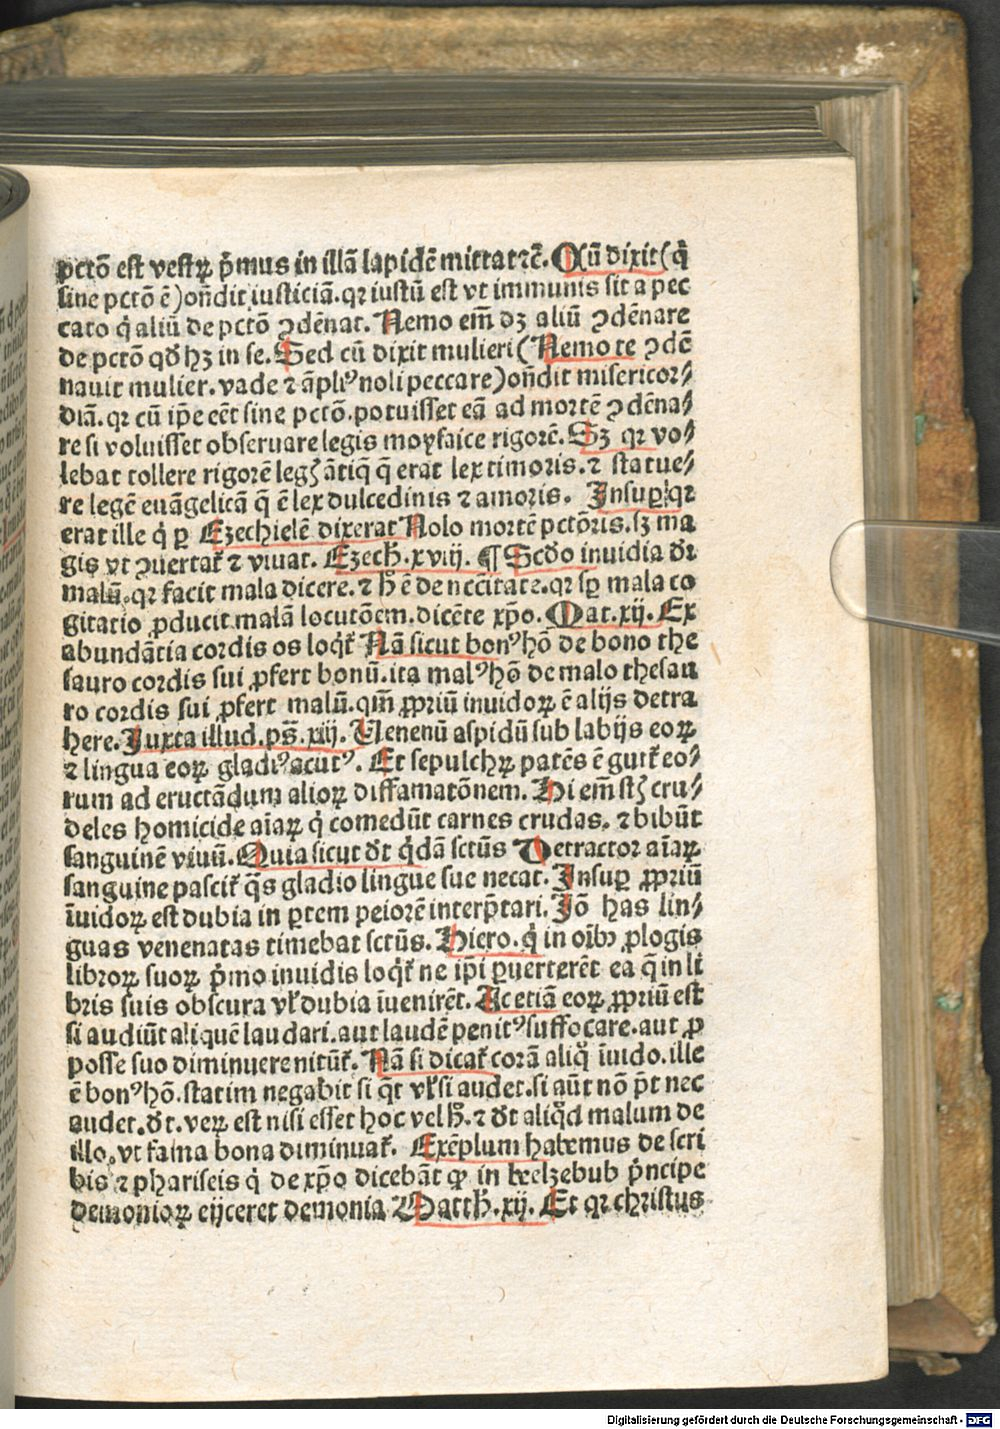 pctō est vestrꝝ p̄mus in illā lapidē mittat ⁊c̄. Qn̄ dixit (q̇
sine pctō ē) on̄dit iusticiā. qꝛ iustū est vt immunis sit a pec
cato q̇ aliū de pctō ↄdēnat. Nemo em̄ dꝫ aliū ↄdēnare
de pctō qđ hꝫ in se. Sed cū dixit mulieri (Nemo te ↄdē
nauit mulier. vade ⁊ āpliꝰ noli peccare) on̄dit misericoꝛ⸗
diā. qꝛ cū ip̄e eēt sine pctō. potuisset eā ad moꝛtē ↄdēna⸗
re si voluisset obseruare legis moysaice rigoꝛē. Sꝫ qꝛ vo⸗
lebat tollere rigoꝛē legꝭ ātiq̄ q̄ erat lex timoꝛis. ⁊ statue⸗
re legē euāgelicā q̄ ē lex dulcedinis ⁊ amoꝛis. Insuꝑ qꝛ
erat ille q̇ ꝑ Ezechielē dixerat Nolo moꝛtē pctōꝛis. sꝫ ma
gis vt ↄuertat᷑ ⁊ viuat. Ezecħ. xviij. ¶ Scđo inuidia đꝛ
malū. qꝛ facit mala dicere. ⁊ ħ ē de nec̄citate. qꝛ sꝑ mala co
gitatio ꝓducit malā locutōem. dicēte xp̄o. Mat. xij. Ex
abundātia coꝛdis os loqt᷑ Nā sicut bonꝰ hō de bono the
sauro coꝛdis sui ꝓfert bonū. ita malꝰ hō de malo thesau
ro coꝛdis sui ꝓfert malū. qm̄ ꝓpꝛiū inuidoꝝ ē alijs detra
here. Juxta illud. ps̄. xiij. Uenenū aspidū sub labijs eoꝝ
⁊ lingua eoꝝ gladiꝰ acutꝰ. Et sepulchꝝ patēs ē gutt᷑ eo⸗
rum ad eructādum alioꝝ diffamatōnem. Hi em̄ stꝭ cru⸗
deles homicide aīaꝝ q̇ comedūt carnes crudas. ⁊ bibūt
sanguinē viuū. Quia sicut đt q̇dā sctūs Detractoꝛ aīaꝝ
sanguine pascit᷑ q̄s gladio lingue sue necat. Insuꝑ ꝓpꝛiū
īuidoꝝ est dubia in ꝑtem peioꝛē interp̄tari. Jō has lin⸗
guas venenatas timebat sctūs. Hiero. q̇ in oībꝫ ꝓlogis
libroꝝ suoꝝ p̄mo inuidis loqt᷑ ne ip̄i ꝑuerterēt ea q̄ in li
bris suis obscura vl᷑ dubia īuenirēt. Ac etiā eoꝝ ꝓpꝛiū est
si audiūt aliquē laudari. aut laudē penitꝰ suffocare. aut ꝓ
posse suo diminuere nitūt᷑. Nā si dicat᷑ coꝛā aliq̇ īuido. ille
ē bonꝰ hō. statim negabit si q̇t vl᷑ si audet. si aūt nō p̄t nec
audet. đt. veꝝ est nisi esset hoc vel ħ. ⁊ đt aliq̇d malum de
illo. vt fama bona diminuat᷑. Exēplum habemus de scri
bis ⁊ phariseis q̇ de xp̄o dicebāt ꝙ in beelzebub pꝛ̄ncipe
demonioꝝ eijceret demonia Mattħ. xij. Et qꝛ christus
Digitalisierung gefördert durch die Deutsche Forschungsgemeinschaft - DFG